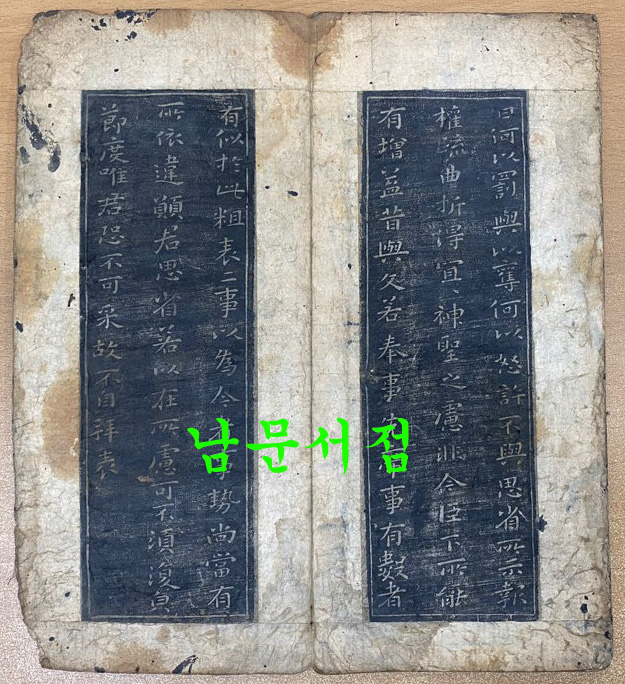 日何以罰與以奪何以怒許不與思省所示報
權疏曲折得宜〻神聖之慮非今臣下所能
有增益昔與文若奉事先帝事有數者
有似於此粗表二事以為今者事勢尚當有
所依違願君思省若以在所慮可不須復具
節度唯君恐不可采故不自拜表
남문서점